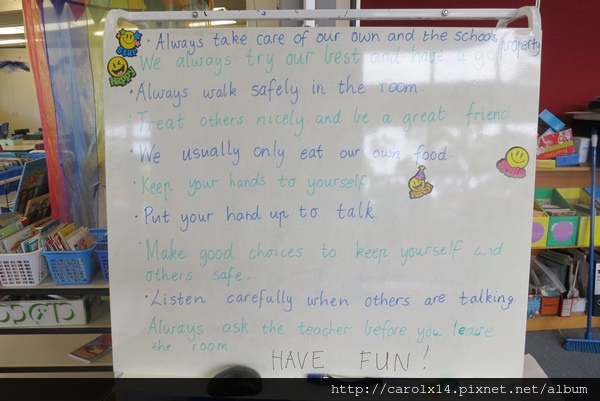 • Always take care of our own and the schools property
We always try our best and have a go!
• Always walk safely in the room.
• Treat others nicely and be a great friend
• We usually only eat our own food.
• Keep your hands to yourself
• Put your hand up to talk.
• Make good choices to keep yourself and
others safe.
• Listen carefully when others are talking.
Always ask the teacher before you leave
the room
HAVE FUN!
http://carolx14.pixnet.net/album